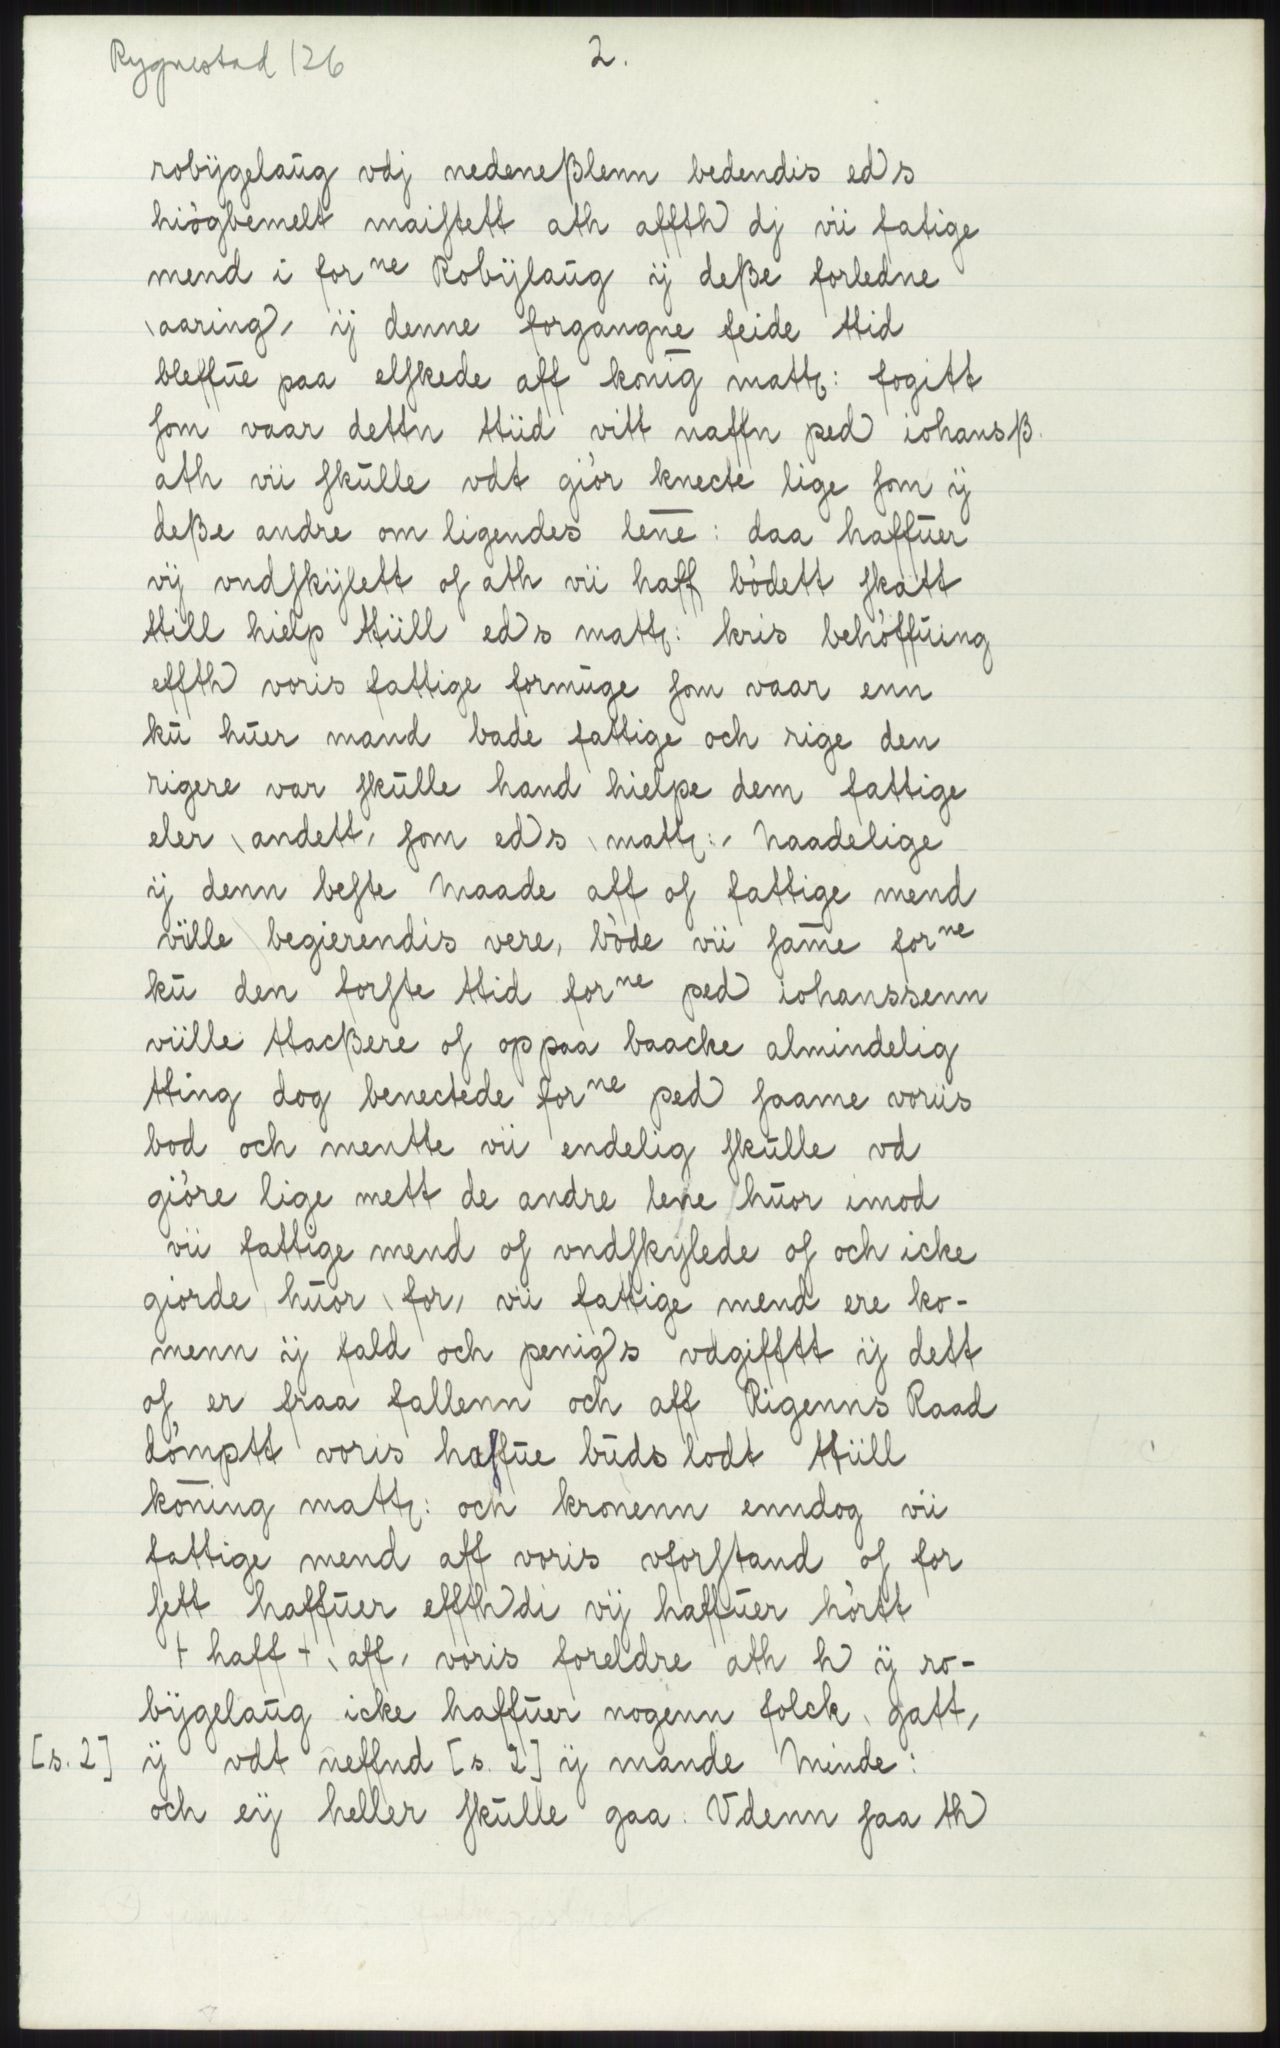 Rygnestad 126
2.
robÿgelaūg vdj nedeneßlenn bedendis eds
hiögbemelt maiſtett ath affth dj vii fatige
mend i forne Robÿlaūg ÿ deße forledne
\aaring/ ÿ denne forgangne feide ttid
bleffūe paa elſkede aff konīg matt: fogitt
ſom vaar dettn ttiid vitt naffn ped iohansß.
ath vii ſkūlle vdt giör knecte lige ſom ÿ
deße andre om ligendes len̄e: daa haffūer
vÿ vndſkÿlett oſ ath vii haff bödett ſkatt
ttill hielp ttiill eds matt: kris behöffūing
effth voris fattige formūge ſom vaar enn
kū hūer mand bade fattige och rige den
rigere var ſkūlle hand hielpe dem fattige
eler \andett/ ſom eds \matt:/ Naadelige
ÿ denn beſte Maade aff oſ fattige mend
ville begierendis vere, böde vii ſam̄e forne
kū den forſte ttid forne ped iohanssenn
viille ttacßere oſ oppaa baacke almindelig
tting dog benectede forne ped ſaame voriis
bod och mentte vii endelig ſkūlle vd
giöre lige mett de andre lene hūor imod
vii fattige mend oſ vndſkylede oſ och icke
giorde hūor \for/ vii fattige mend ere ko-
menn ÿ fald och penigs vdgifftt ÿ dett
oſ er fraa fallenn och aff Rigenns Raad
dömptt voris haffūe būds lodt ttiill
kön̄ing matt: och kronenn enndog vii
fattige mend aff voris vforſtand oſ for
ſett haffūer effthdi vÿ haffūer hörtt
+ haff + \aff/ voris foreldre ath h ÿ ro-
bÿgelaūg icke haffūer nogenn folck \gatt/
[s. 2] ÿ vdt neffnd [s. 2] ÿ mande Minde:
och eÿ heller ſkūlle gaa. Vdenn ſaa th